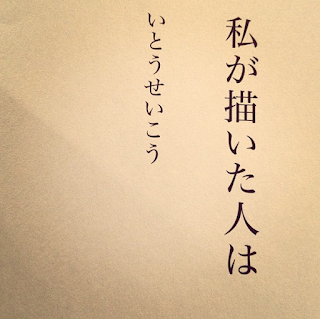 私が描いた人は
いとうせいこう